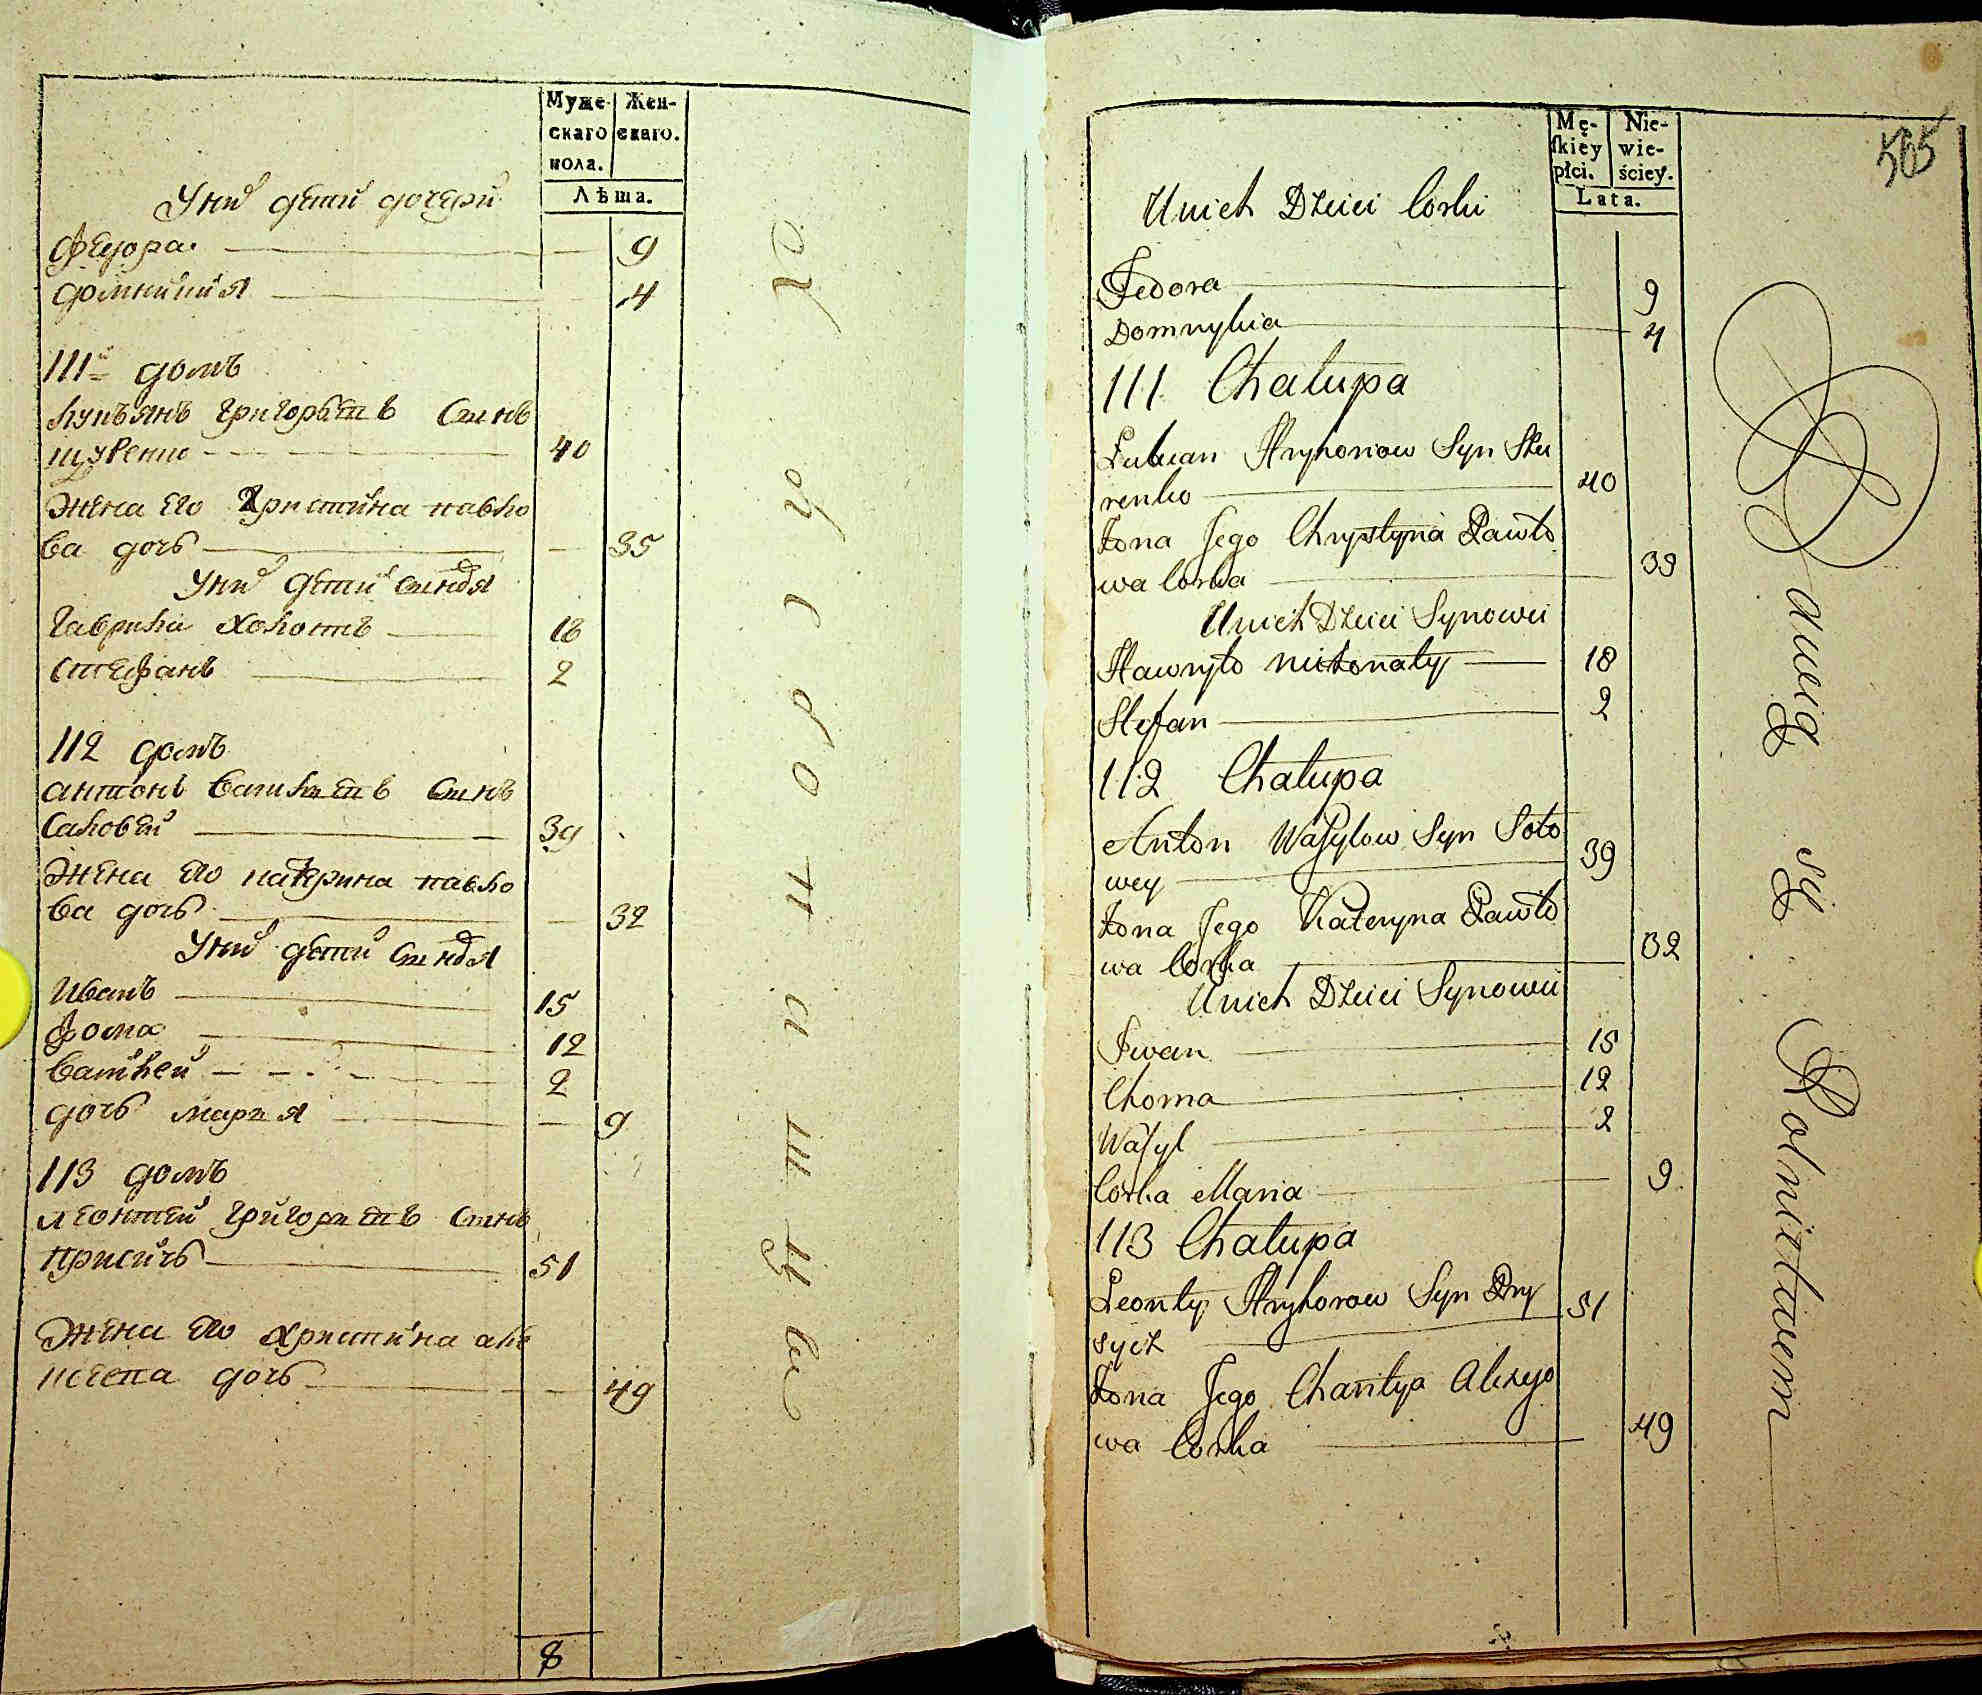 Муже-
скаго
пола.
Жен-
скаго.
Лѣта.
Унихъ дети дочери
Феѡдора. 9
домникия 4
111й домъ
лукъянъ григорьевъ синъ
щуренко 40
жена его Христина павло
ва дочь 35
Унихъ дети синовя
гаврила холостъ 18
стефанъ 2
112 домъ
антонъ василиевъ синъ
саловей 39
жена его катерина павло
ва дочь 32
Унихъ дети синовя
иванъ 15
фома 12
василей 2
дочь мария 9
113 домъ
леонтей григориевъ синъ
присичъ 51
жена его христина але
ксеева дочь 49
8
565
Mę-
ſkiey
płci.
Nie-
wie-
ściey.
Lata.
Unich Dzieci Corki
Fedora 9
Domnykia 4
111 Chałupa
Łukian Hryhoriow Syn Szczu
renko 40
Żona Jego Chrystyna Pawło
wa Corka 39
Unich Dzieci Synowie
Hawryło nieżonaty 18
Stefan 2
112 Chałupa
Anton Waſylow Syn Soło
wey 39
Żona Jego Kateryna Pawło
wa Corka 32
Unich Dzieci Synowie
Jwan 15
Choma 12
Waſyl 2
Corka Maria 9
113 Chałupa
Leonty Hryhorow Syn Pry
sycz 51
Żona Jego Alexeje
wa Corka 49
Bawią się Rolnictwem